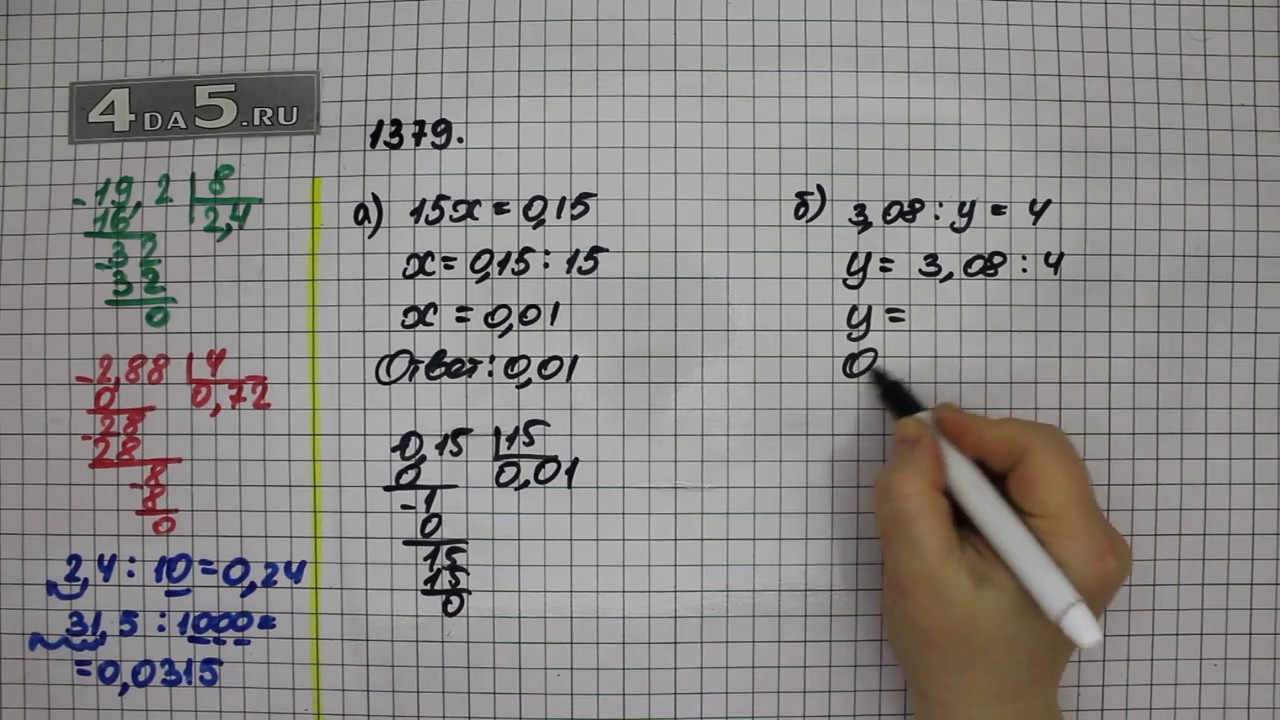 4DA5.RU
1379.
-19,2 | 8
16 2,4
-32
32
0
-2,88 | 4
0 0,72
-28
28
-8
8
0
2,4 : 10 = 0,24
31,5 : 1000 =
= 0,0315
а) 15x = 0,15
x = 0,15 : 15
x = 0,01
Ответ: 0,01
0,15 | 15
0 0,01
-1
0
15
15
0
б) 3,08 : y = 4
y = 3,08 : 4
y =
О